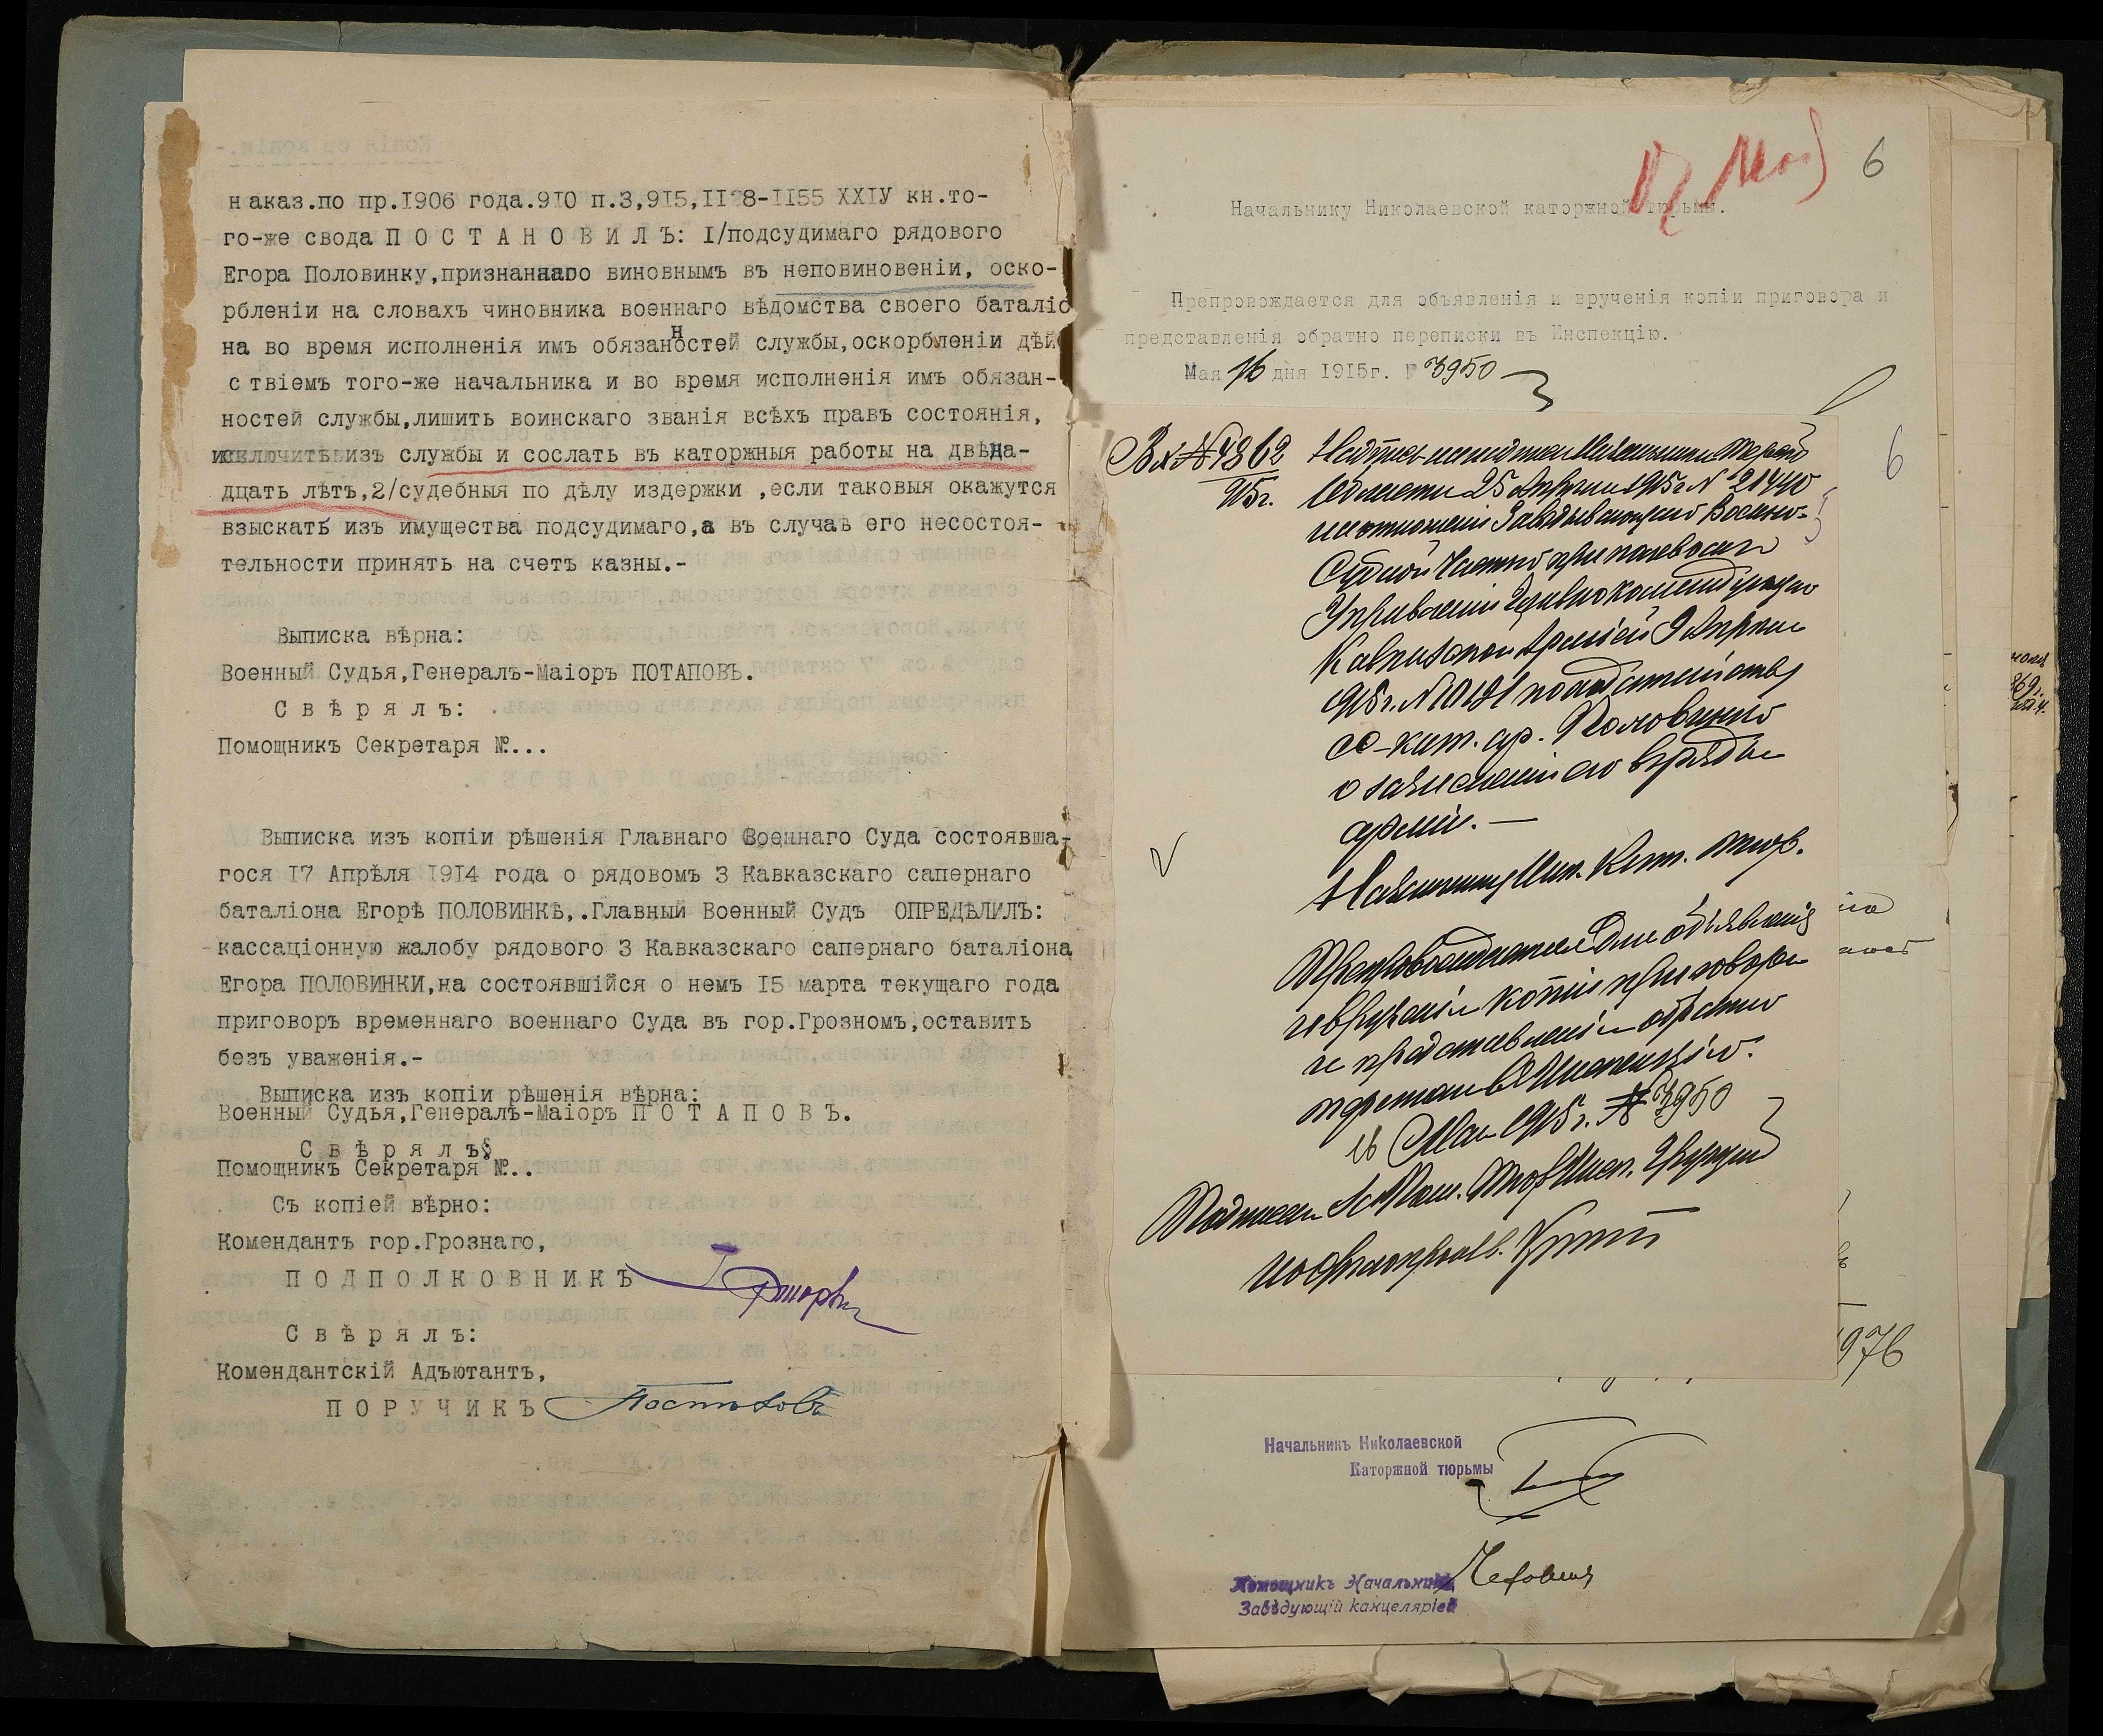 наказ.по пр.I906 года.9I0 п.3,9I5,II 8-II55 XXIУ кн.то-
го-же свода П О С Т А Н О В И Л Ъ: I/подсудимаго рядового
Егора Половинку,признаннаго виновнымъ въ неповиновеніи, оско-
рбленіи на словахъ чиновника военнаго вѣдомства своего баталіо
на во время исполненія имъ обязанностей службы,оскорбленіи дѣй
ствіемъ того-же начальника и во время исполненія имъ обязан-
ностей службы,лишить воинскаго званія всѣхъ правъ состоянія,
исключить изъ службы и сослать въ каторжныя работы на двѣна-
дцать лѣтъ,2/судебныя по дѣлу издержки ,если таковыя окажутся
взыскать изъ имущества подсудимаго,а въ случаѣ его несостоя-
тельности принять на счетъ казны.-
Выписка вѣрна:
Военный Судья,Генералъ-Маіоръ ПОТАПОВЪ.
С в ѣ р я л ъ:
Помощникъ Секретаря №...
Выписка изъ копіи рѣшенія Главнаго Военнаго Суда состоявша-
гося I7 Апрѣля I9I4 года о рядовомъ 3 Кавказскаго сапернаго
баталіона Егорѣ ПОЛОВИНКѢ,.Главный Военный Судъ ОПРЕДѢЛИЛЪ:
-кассаціонную жалобу рядового 3 Кавказскаго сапернаго баталіона
Егора ПОЛОВИНКИ,на состоявшійся о немъ I5 марта текущаго года
приговоръ временнаго военнаго Суда въ гор.Грозномъ,оставить
безъ уваженія.-
Выписка изъ копіи рѣшенія вѣрна:
Военный Судья,Генералъ-Маіоръ П О Т А П О В Ъ.
С в ѣ р я л ъ
Помощникъ Секретаря №..
Съ копіей вѣрно:
Комендантъ гор.Грознаго,
П О Д П О Л К О В Н И К Ъ
С в ѣ р я л ъ:
Комендантскій Адъютантъ,
П О Р У Ч И К Ъ
6
Начальнику Николаевской каторжной тюрьмы.
Препровождается для объявленія и врученія копіи приговора и
представленія обратно переписки въ Инспекцію.
Мая 16 дня 1915г. № 3950
Вх № 4862
915г.
Надпись Начальника Терской
Области 25 Апрѣля 1915 г. № 21440
на отношеніи Завѣдывающаго Военно-
Судной Частью при полевомъ
Управленіи Главнокомандующаго
Кавказской Арміей 9 Апрѣля
915г. № 10181 по ходатайству
сс-кат. ар. Половинко
о зачисленіи его въ ряды
арміи. —
Начальнику Ник. Кат. тюр.
Препровождается для объявленія
и врученія копіи приговора
и представленія обратно
переписки въ Инспекцію.
16 Мая 1915г. № 3950
Подписали За Пом. Тюр. Инсп.
и Дѣлопроизв.
6
976
Начальникъ Николаевской
Каторжной тюрьмы
Помощникъ Начальника
Завѣдующій канцеляріей